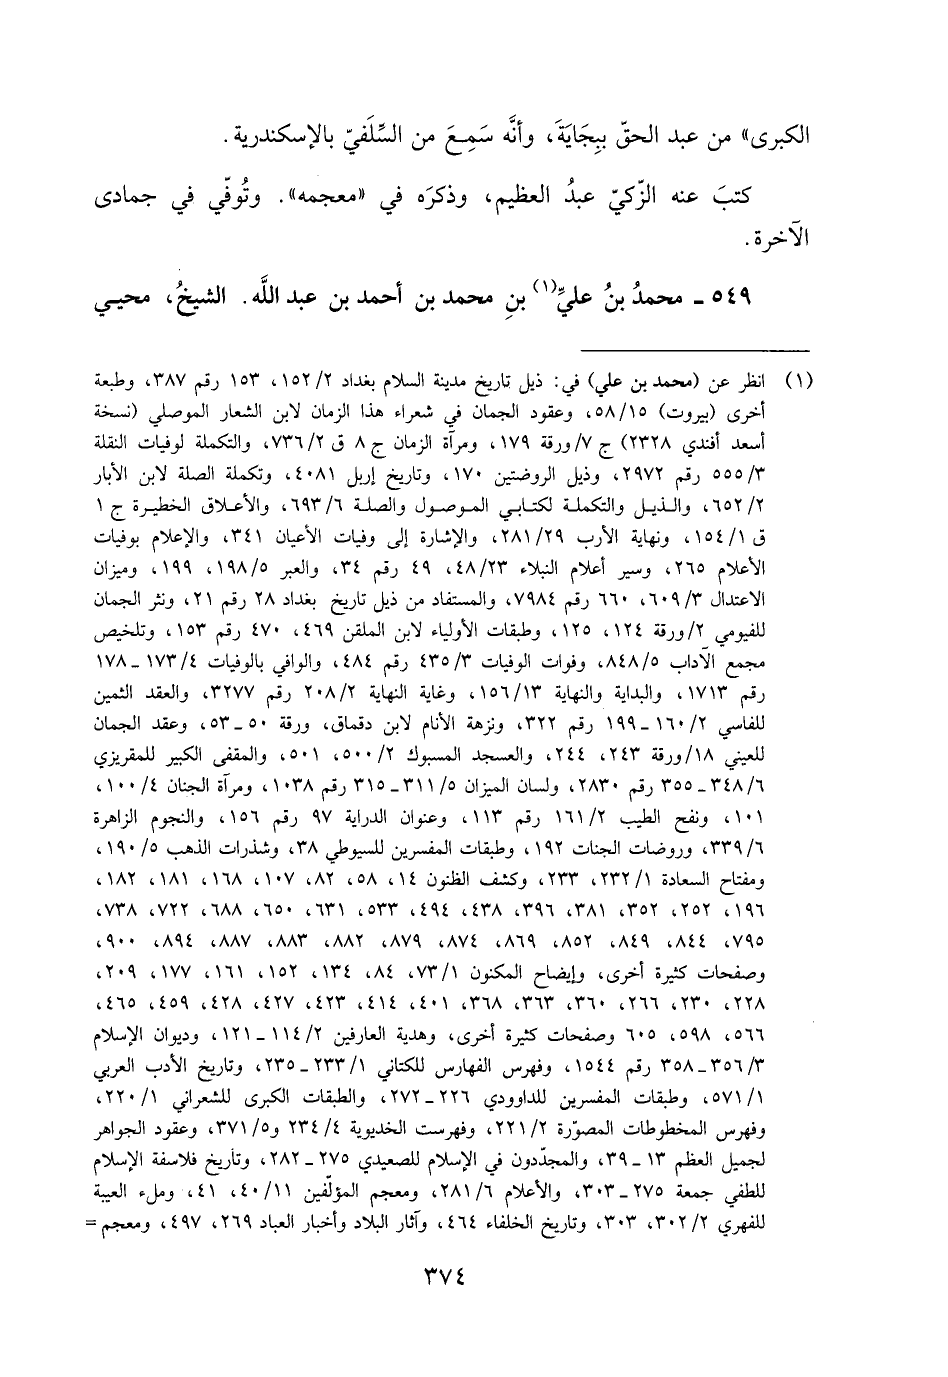 الكبرى» من عبد الحقّ ببِجَايَةَ، وأنَّه سَمِعَ من السِّلَفيّ بالإسكندرية.
كتبَ عنه الزّكيّ عبدُ العظيم، وذكرَه في «معجمه». وتُوفّي في جمادى
الآخرة.
٥٤٩ ـ محمدُ بنُ عليٍّ(١) بنِ محمد بن أحمد بن عبد اللَّه. الشيخُ، محيـي
(١) انظر عن (محمد بن علي) في: ذيل تاريخ مدينة السلام بغداد ٢/ ١٥٢، ١٥٣ رقم ٣٨٧، وطبعة
أخرى (بيروت) ١٥/ ٥٨، وعقود الجمان في شعراء هذا الزمان لابن الشعار الموصلي (نسخة
أسعد أفندي ٢٣٢٨) ج ٧/ ورقة ١٧٩، ومرآة الزمان ج ٨ ق ٢/ ٧٣٦، والتكملة لوفيات النقلة
٣/ ٥٥٥ رقم ٢٩٧٢، وذيل الروضتين ١٧٠، وتاريخ إربل ٤٠٨١، وتكملة الصلة لابن الأبار
٢/ ٦٥٢، والـذيـل والتكملـة لكتـابـي المـوصـول والصلـة ٦/ ٦٩٣، والأعـلاق الخطيـرة ج ١
ق ١/ ١٥٤، ونهاية الأرب ٢٩/ ٢٨١، والإشارة إلى وفيات الأعيان ٣٤١، والإعلام بوفيات
الأعلام ٢٦٥، وسير أعلام النبلاء ٢٣/ ٤٨، ٤٩ رقم ٣٤، والعبر ٥/ ١٩٨، ١٩٩، وميزان
الاعتدال ٣/ ٦٠٩، ٦٦٠ رقم ٧٩٨٤، والمستفاد من ذيل تاريخ بغداد ٢٨ رقم ٢١، ونثر الجمان
للفيومي ٢/ ورقة ١٢٤، ١٢٥، وطبقات الأولياء لابن الملقن ٤٦٩، ٤٧٠ رقم ١٥٣، وتلخيص
مجمع الآداب ٥/ ٨٤٨، وفوات الوفيات ٣/ ٤٣٥ رقم ٤٨٤، والوافي بالوفيات ٤/ ١٧٣ ـ ١٧٨
رقم ١٧١٣، والبداية والنهاية ١٣/ ١٥٦، وغاية النهاية ٢/ ٢٠٨ رقم ٣٢٧٧، والعقد الثمين
للفاسي ٢/ ١٦٠ ـ ١٩٩ رقم ٣٢٢، ونزهة الأنام لابن دقماق، ورقة ٥٠ ـ ٥٣، وعقد الجمان
للعيني ١٨/ ورقة ٢٤٣، ٢٤٤، والعسجد المسبوك ٢/ ٥٠٠، ٥٠١، والمقفى الكبير للمقريزي
٦/ ٣٤٨ ـ ٣٥٥ رقم ٢٨٣٠، ولسان الميزان ٥/ ٣١١ ـ ٣١٥ رقم ١٠٣٨، ومرآة الجنان ٤/ ١٠٠،
١٠١، ونفح الطيب ٢/ ١٦١ رقم ١١٣، وعنوان الدراية ٩٧ رقم ١٥٦، والنجوم الزاهرة
٦/ ٣٣٩، وروضات الجنات ١٩٢، وطبقات المفسرين للسيوطي ٣٨، وشذرات الذهب ٥/ ١٩٠،
ومفتاح السعادة ١/ ٢٣٢، ٢٣٣، وكشف الظنون ١٤، ٥٨، ٨٢، ١٠٧، ١٦٨، ١٨١، ١٨٢،
١٩٦، ٢٥٢، ٣٥٢، ٣٨١، ٣٩٦، ٤٣٨، ٤٩٤، ٥٣٣، ٦٣١، ٦٥٠، ٦٨٨، ٧٢٢، ٧٣٨،
٧٩٥، ٨٤٤، ٨٤٩، ٨٥٢، ٨٦٩، ٨٧٤، ٨٧٩، ٨٨٢، ٨٨٣، ٨٨٧، ٨٩٤، ٩٠٠،
وصفحات كثيرة أخرى، وإيضاح المكنون ١/ ٧٣، ٨٤، ١٣٤، ١٥٢، ١٦١، ١٧٧، ٢٠٩،
٢٢٨، ٢٣٠، ٢٦٦، ٣٦٠، ٣٦٣، ٣٦٨، ٤٠١، ٤١٤، ٤٢٣، ٤٢٧، ٤٢٨، ٤٥٩، ٤٦٥،
٥٦٦، ٥٩٨، ٦٠٥ وصفحات كثيرة أخرى، وهدية العارفين ٢/ ١١٤ ـ ١٢١، وديوان الإسلام
٣/ ٣٥٦ ـ ٣٥٨ رقم ١٥٤٤، وفهرس الفهارس للكتاني ١/ ٢٣٣ ـ ٢٣٥، وتاريخ الأدب العربي
١/ ٥٧١، وطبقات المفسرين للداوودي ٢٢٦ ـ ٢٧٢، والطبقات الكبرى للشعراني ١/ ٢٢٠،
وفهرس المخطوطات المصوّرة ٢/ ٢٢١، وفهرست الخديوية ٤/ ٢٣٤ و٥/ ٣٧١، وعقود الجواهر
لجميل العظم ١٣ ـ ٣٩، والمجدّدون في الإسلام للصعيدي ٢٧٥ ـ ٢٨٢، وتأريخ فلاسفة الإسلام
للطفي جمعة ٢٧٥ ـ ٣٠٣، والأعلام ٦/ ٢٨١، ومعجم المؤلّفين ١١/ ٤٠، ٤١، وملء العيبة
للفهري ٢/ ٣٠٢، ٣٠٣، وتاريخ الخلفاء ٤٦٤، وآثار البلاد وأخبار العباد ٢٦٩، ٤٩٧، ومعجم =
٣٧٤